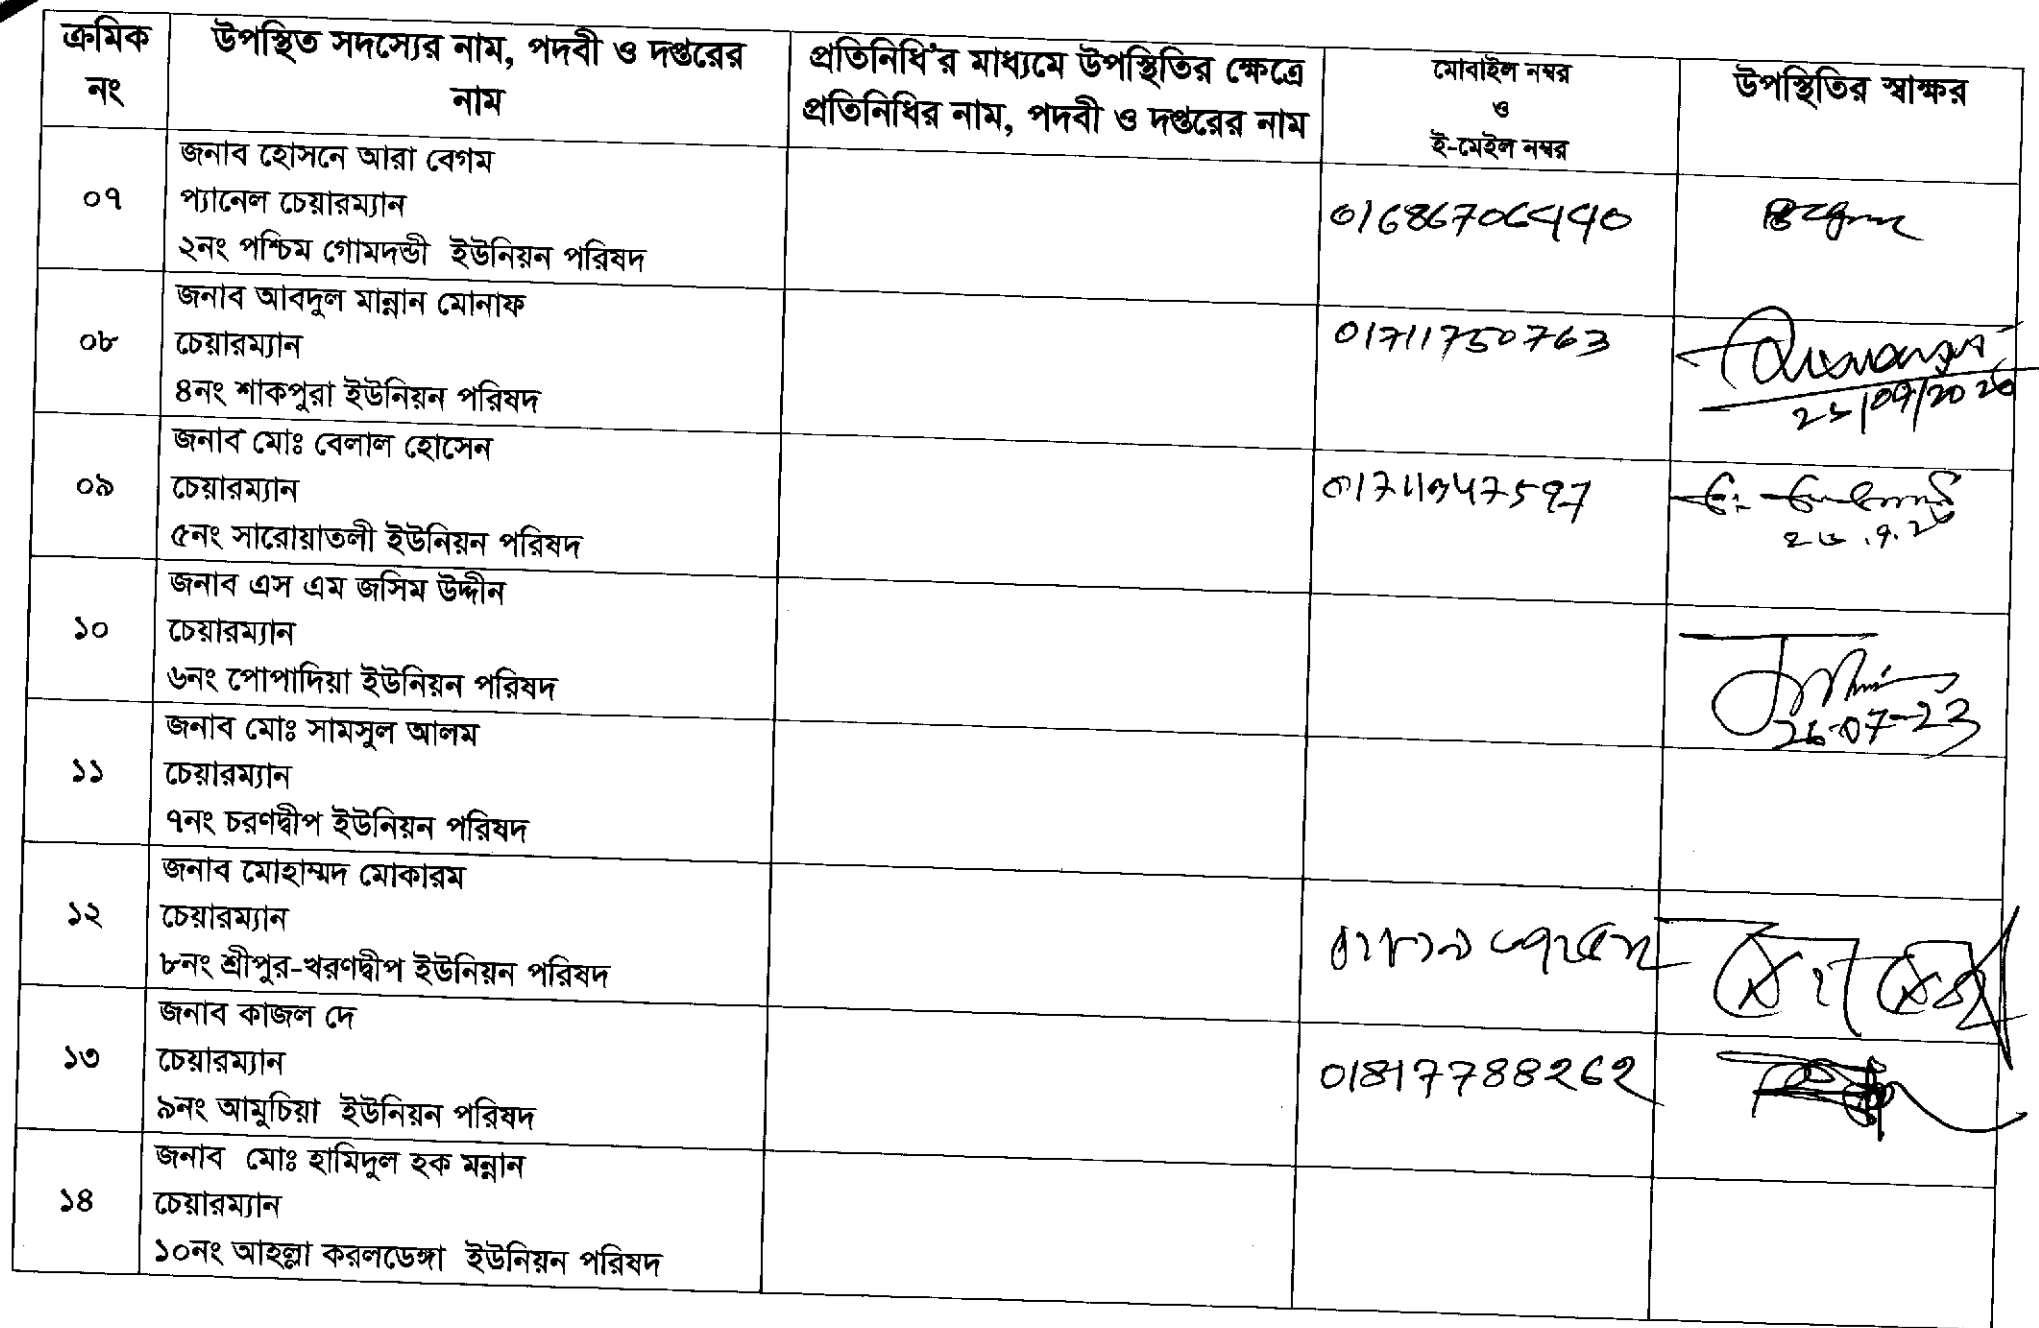 ক্রমিক নং
উপস্থিত সদস্যের নাম, পদবী ও দপ্তরের
নাম
প্রতিনিধি'র মাধ্যমে উপস্থিতির ক্ষেত্রে
প্রতিনিধির নাম, পদবী ও দপ্তরের নাম
মোবাইল নম্বর
ও
ই-মেইল নম্বর
উপস্থিতির স্বাক্ষর
০৭
জনাব হোসনে আরা বেগম
প্যানেল চেয়ারম্যান
২নং পশ্চিম গোমদন্ডী ইউনিয়ন পরিষদ
Begum
০৮
জনাব আবদুল মান্নান মোনাফ
চেয়ারম্যান
৪নং শাকপুরা ইউনিয়ন পরিষদ
01711750763
০৯
জনাব মোঃ বেলাল হোসেন
চেয়ারম্যান
৫নং সারোয়াতলী ইউনিয়ন পরিষদ
১০
জনাব এস এম জসিম উদ্দীন
চেয়ারম্যান
৬নং পোপাদিয়া ইউনিয়ন পরিষদ
26-07-23
১১
জনাব মোঃ সামসুল আলম
চেয়ারম্যান
৭নং চরণদ্বীপ ইউনিয়ন পরিষদ
১২
জনাব মোহাম্মদ মোকারম
চেয়ারম্যান
৮নং শ্রীপুর-খরণদ্বীপ ইউনিয়ন পরিষদ
১৩
জনাব কাজল দে
চেয়ারম্যান
৯নং আমুচিয়া ইউনিয়ন পরিষদ
01817788262
১৪
জনাব মোঃ হামিদুল হক মন্নান
চেয়ারম্যান
১০নং আহল্লা করলডেঙ্গা ইউনিয়ন পরিষদ